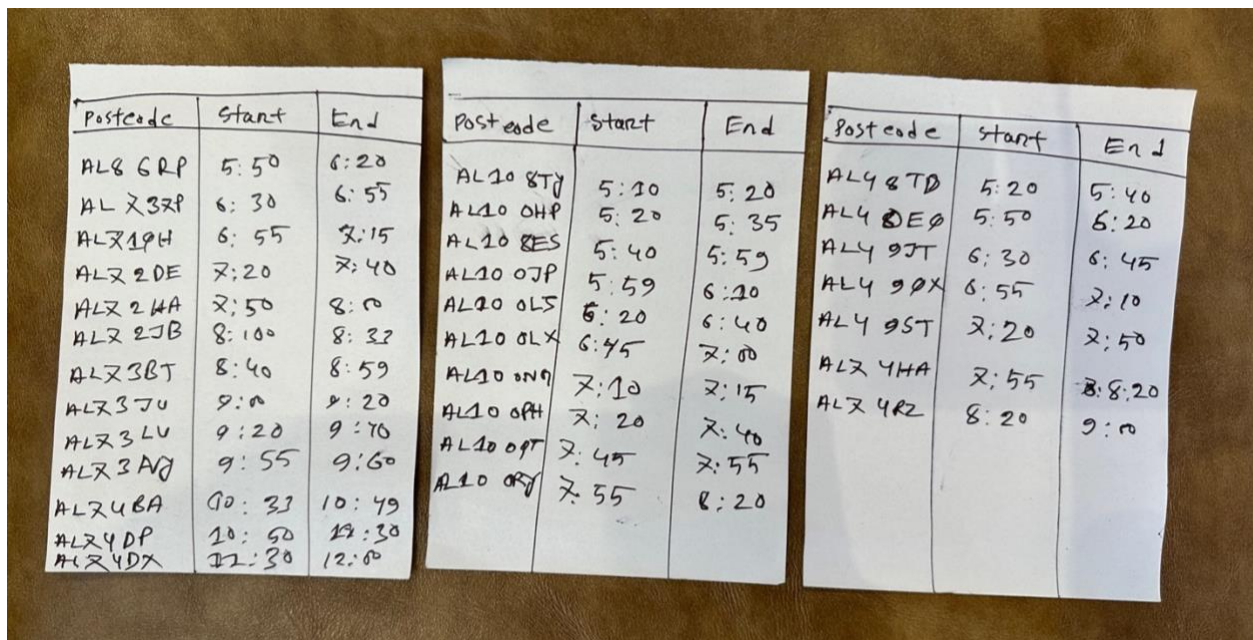 Postcode Start End
AL8 6RP 5:50 6:20
AL 7 3ZP 6:30 6:55
AL7 1QH 6:55 7:15
AL7 2DE 7:20 7:40
AL7 2HA 7:50 8:00
AL7 2JB 8:100 8:33
AL7 3BT 8:40 8:59
AL7 3JU 9:00 9:20
AL7 3LU 9:20
AL7 3 9:55 9:60
AL7 4BA 10:33 10:49
AL7 4DP 10:50
AL7 4DX 11:30 12:00
Postcode Start End
AL10 8TY 5:10 5:20
AL10 0HP 5:20 5:35
AL10 8ES 5:40 5:59
AL10 0JP 5:59 6:10
AL10 0LS 6:20 6:40
AL10 0LX 6:45 7:00
AL10 0NQ 7:10 7:15
AL10 0PH 7:20 7:40
AL10 0PT 7:45 7:55
AL10 0RY 7:55 8:20
Postcode Start End
AL4 8TD 5:20 5:40
AL4 5:50 6:20
AL4 9JT 6:30 6:45
AL4 9QX 6:55 7:10
AL4 9ST 7:20 7:50
AL7 4HA 7:55 8:20
AL7 4RZ 8:20 9:00